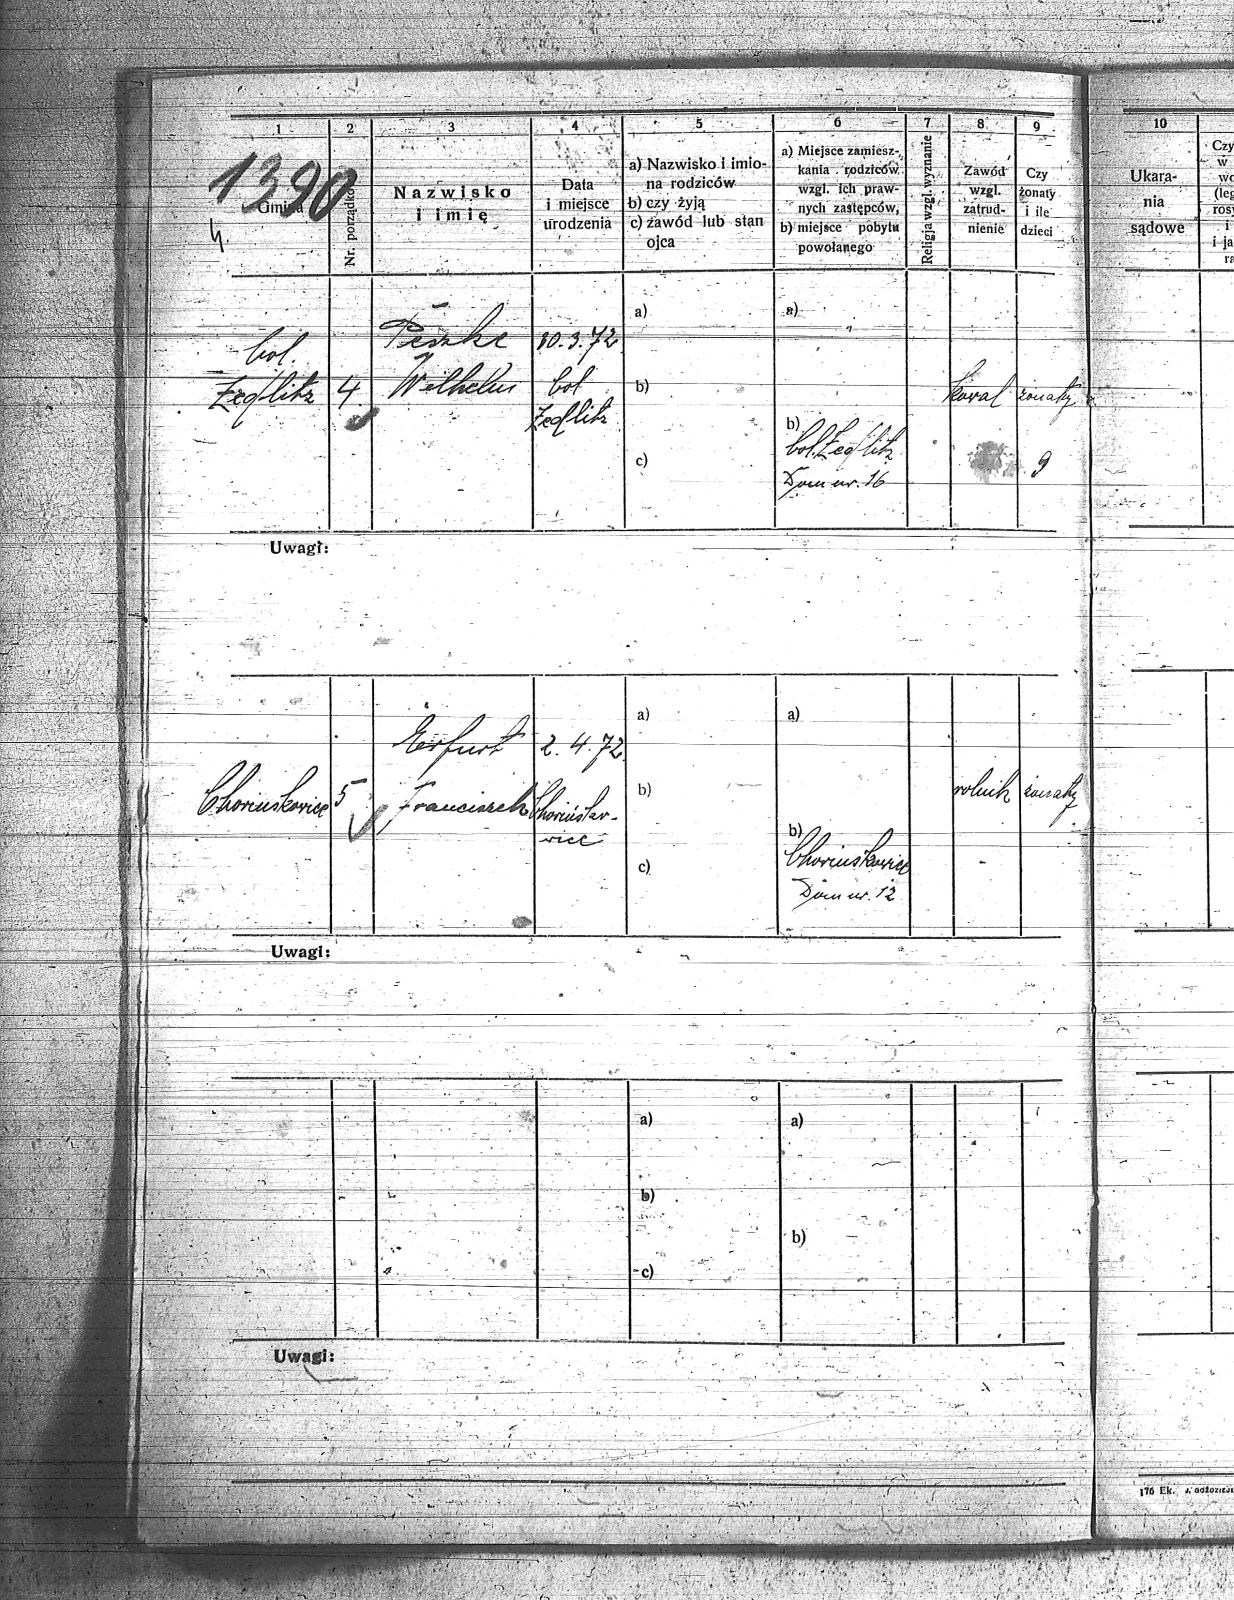 1 2 3 4 5 6 7 8 9 10
1390
Gmina
Nr. porządko
Nazwisko
i imię
Data
i miejsce
urodzenia
a) Nazwisko i imio-
na rodziców
b) czy żyją
c) zawód lub stan
ojca
a) Miejsce zamiesz-
kania rodziców
wzgl. ich praw-
nych zastępców,
b) miejsce pobytu
powołanego
Religja wzgl. wyznanie
Zawód
wzgl.
zatrud-
nienie
Czy
żonaty
i ile
dzieci
Ukara-
nia
sądowe
Czy
w
wo
(leg
rosy
i
i ja
ra
4
Wilhelm
10.3.72
col.
Zedlitz
col
Zedlitz
a)
b)
c)
a)
b)
col. Zedlitz
Dom nr. 16
kowal
żonaty
9
Uwagi:
5
Erfurt
Franciszek
2.4.72
a)
b)
c)
a)
b)
Dom nr. 12
rolnik
żonaty
Uwagi:
a)
b)
c)
a)
b)
Uwagi:
176 Ek.